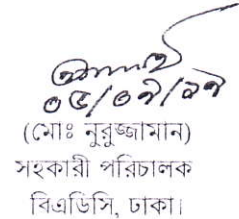 ০৫/০৭/১৭
(মোঃ নুরুজ্জামান)
সহকারী পরিচালক
বিএডিসি, ঢাকা।